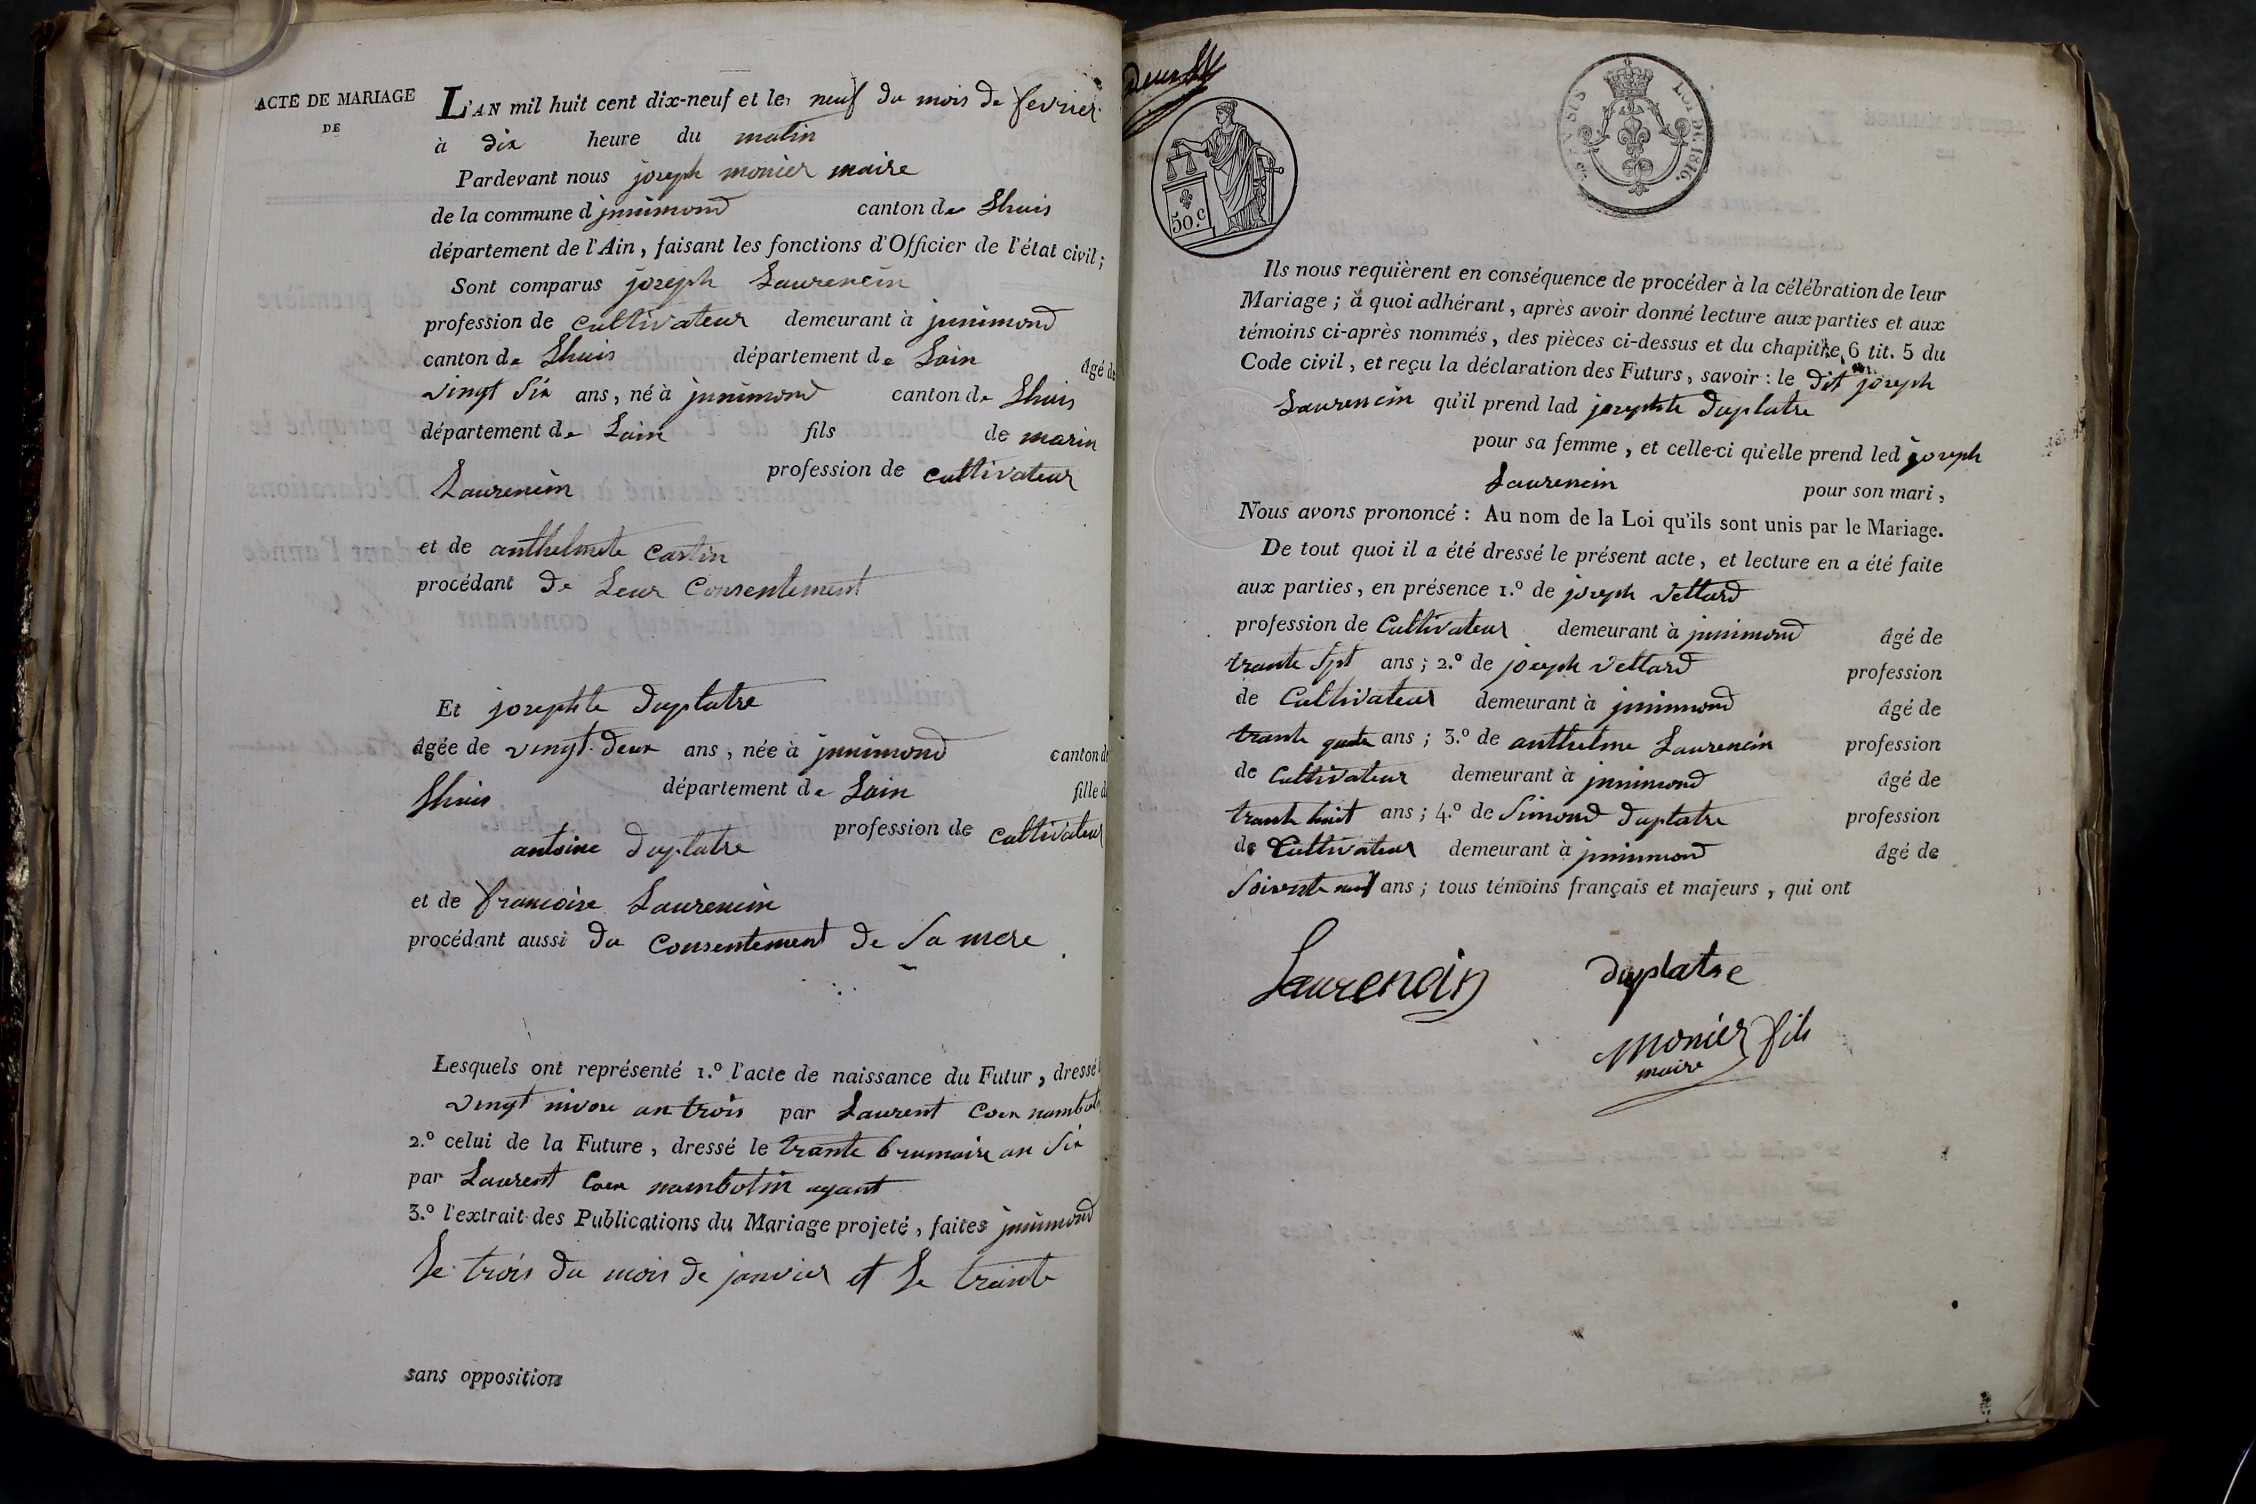 ACTE DE MARIAGE
DE
L'AN mil huit cent dix-neuf et le neuf du mois de fevrier
à dix heure du matin
Pardevant nous joseph monier maire
de la commune d'jnnimond canton de Lhuis
département de l'Ain, faisant les fonctions d'Officier de l'état civil;
Sont comparus joseph Laurencin
profession de cultivateur demeurant à jnnimond
canton de Lhuis département de Lain âgé de
vingt six ans, né à jnnimond canton de Lhuis
département de Lain fils de marin
Laurencin profession de cultivateur
et de anthelmete
procédant de Leur Consentement
Et josephte duplatre
âgée de vingt-deux ans, née à jnnimond canton de
Lhuis département de Lain fille de
antoine duplatre profession de cultivateur
et de francoise Laurencin
procédant aussi du Consentement de Sa mere
Lesquels ont représenté 1.º l'acte de naissance du Futur, dressé
vingt nivose an trois par Laurent
2.º celui de la Future, dressé le trante brumaire an Six
par Laurent nambotin agant
3.º l'extrait des Publications du Mariage projeté, faites jnnimond
Le trois du mois de janvier et Le trante
sans opposition
50.c
LOI DE 1816.
Ils nous requièrent en conséquence de procéder à la célébration de leur
Mariage; à quoi adhérant, après avoir donné lecture aux parties et aux
témoins ci-après nommés, des pièces ci-dessus et du chapitre 6 tit. 5 du
Code civil, et reçu la déclaration des Futurs, savoir: le dit joseph
Laurencin qu'il prend lad josephte duplatre
pour sa femme, et celle-ci qu'elle prend led joseph
Laurencin pour son mari,
Nous avons prononcé: Au nom de la Loi qu'ils sont unis par le Mariage.
De tout quoi il a été dressé le présent acte, et lecture en a été faite
aux parties, en présence 1.º de joseph vettard
profession de Cultivateur demeurant à jnnimond âgé de
trante Spt ans; 2.º de joseph vettard profession
de Cultivateur demeurant à jnnimond âgé de
trante quatre ans; 3.º de anthelme Laurencin profession
de Cultivateur demeurant à jnnimond âgé de
trante huit ans; 4.º de Simond duplatre profession
de Cultivateur demeurant à jnnimond âgé de
Soixante neuf ans; tous témoins français et majeurs, qui ont
Laurencin duplatre
monier fils
maire